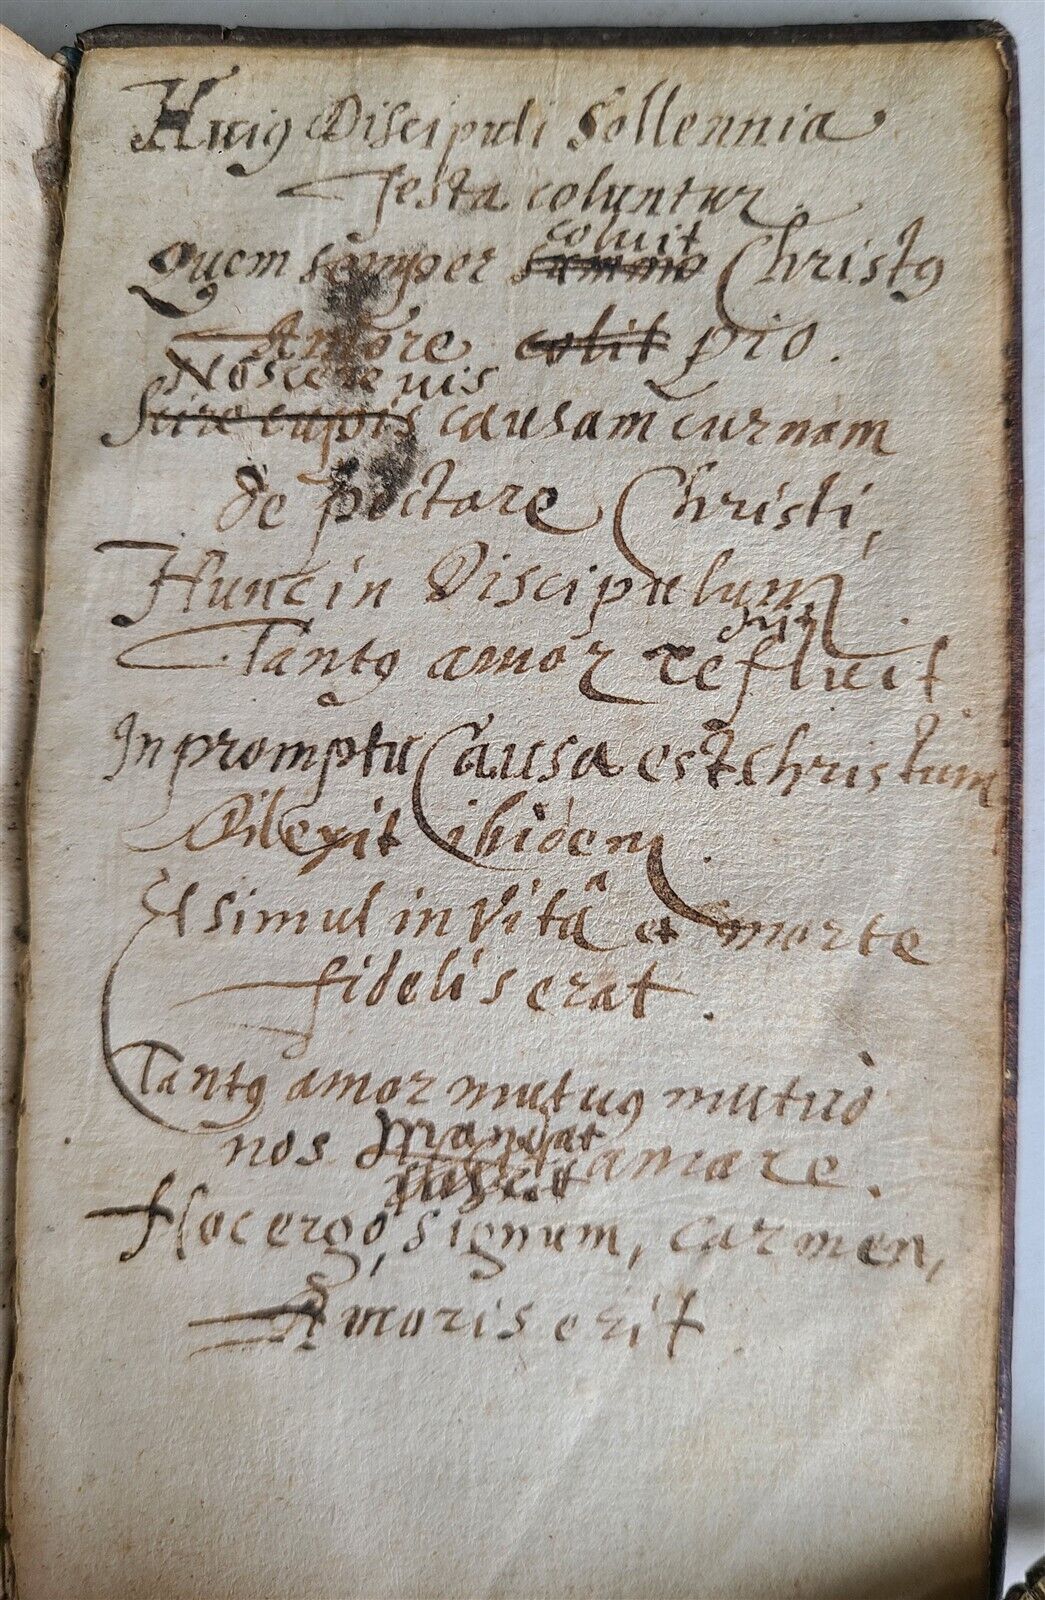 Huiꝰ Discipuli Sollennia
festa coluntur
coluit
Quem semper summo Christꝰ
Amore colit pio.
Noscere uis
Scire cupis causam cur nam
de pectore Christi,
Hunc in Discipulum
Tantꝰ amor refluit.
In promptu Causa est Christum
Dilexit ibidem.
Et simul in Vitâ et morte
fidelis erat.
Tantꝰ amor mutuꝰ mutuò
Mandat
nos amare.
Hoc ergo, signum, carmen,
Amoris erit